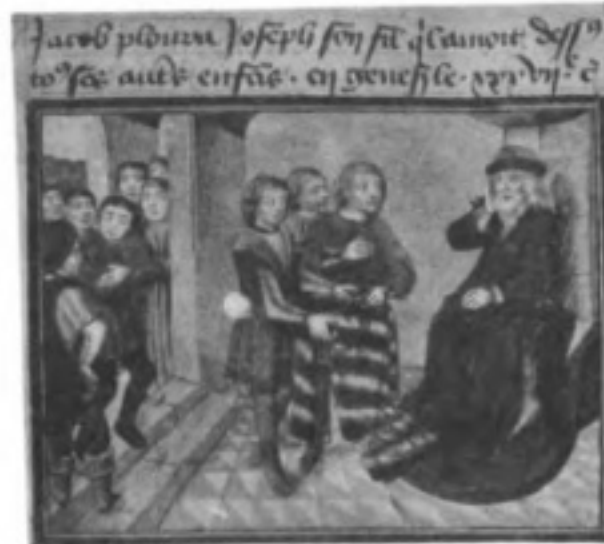 Jacob ploura Joseph son filz q'l amoit dess9
to9 ses autres enfans. en genese le. xxxvii. c̄